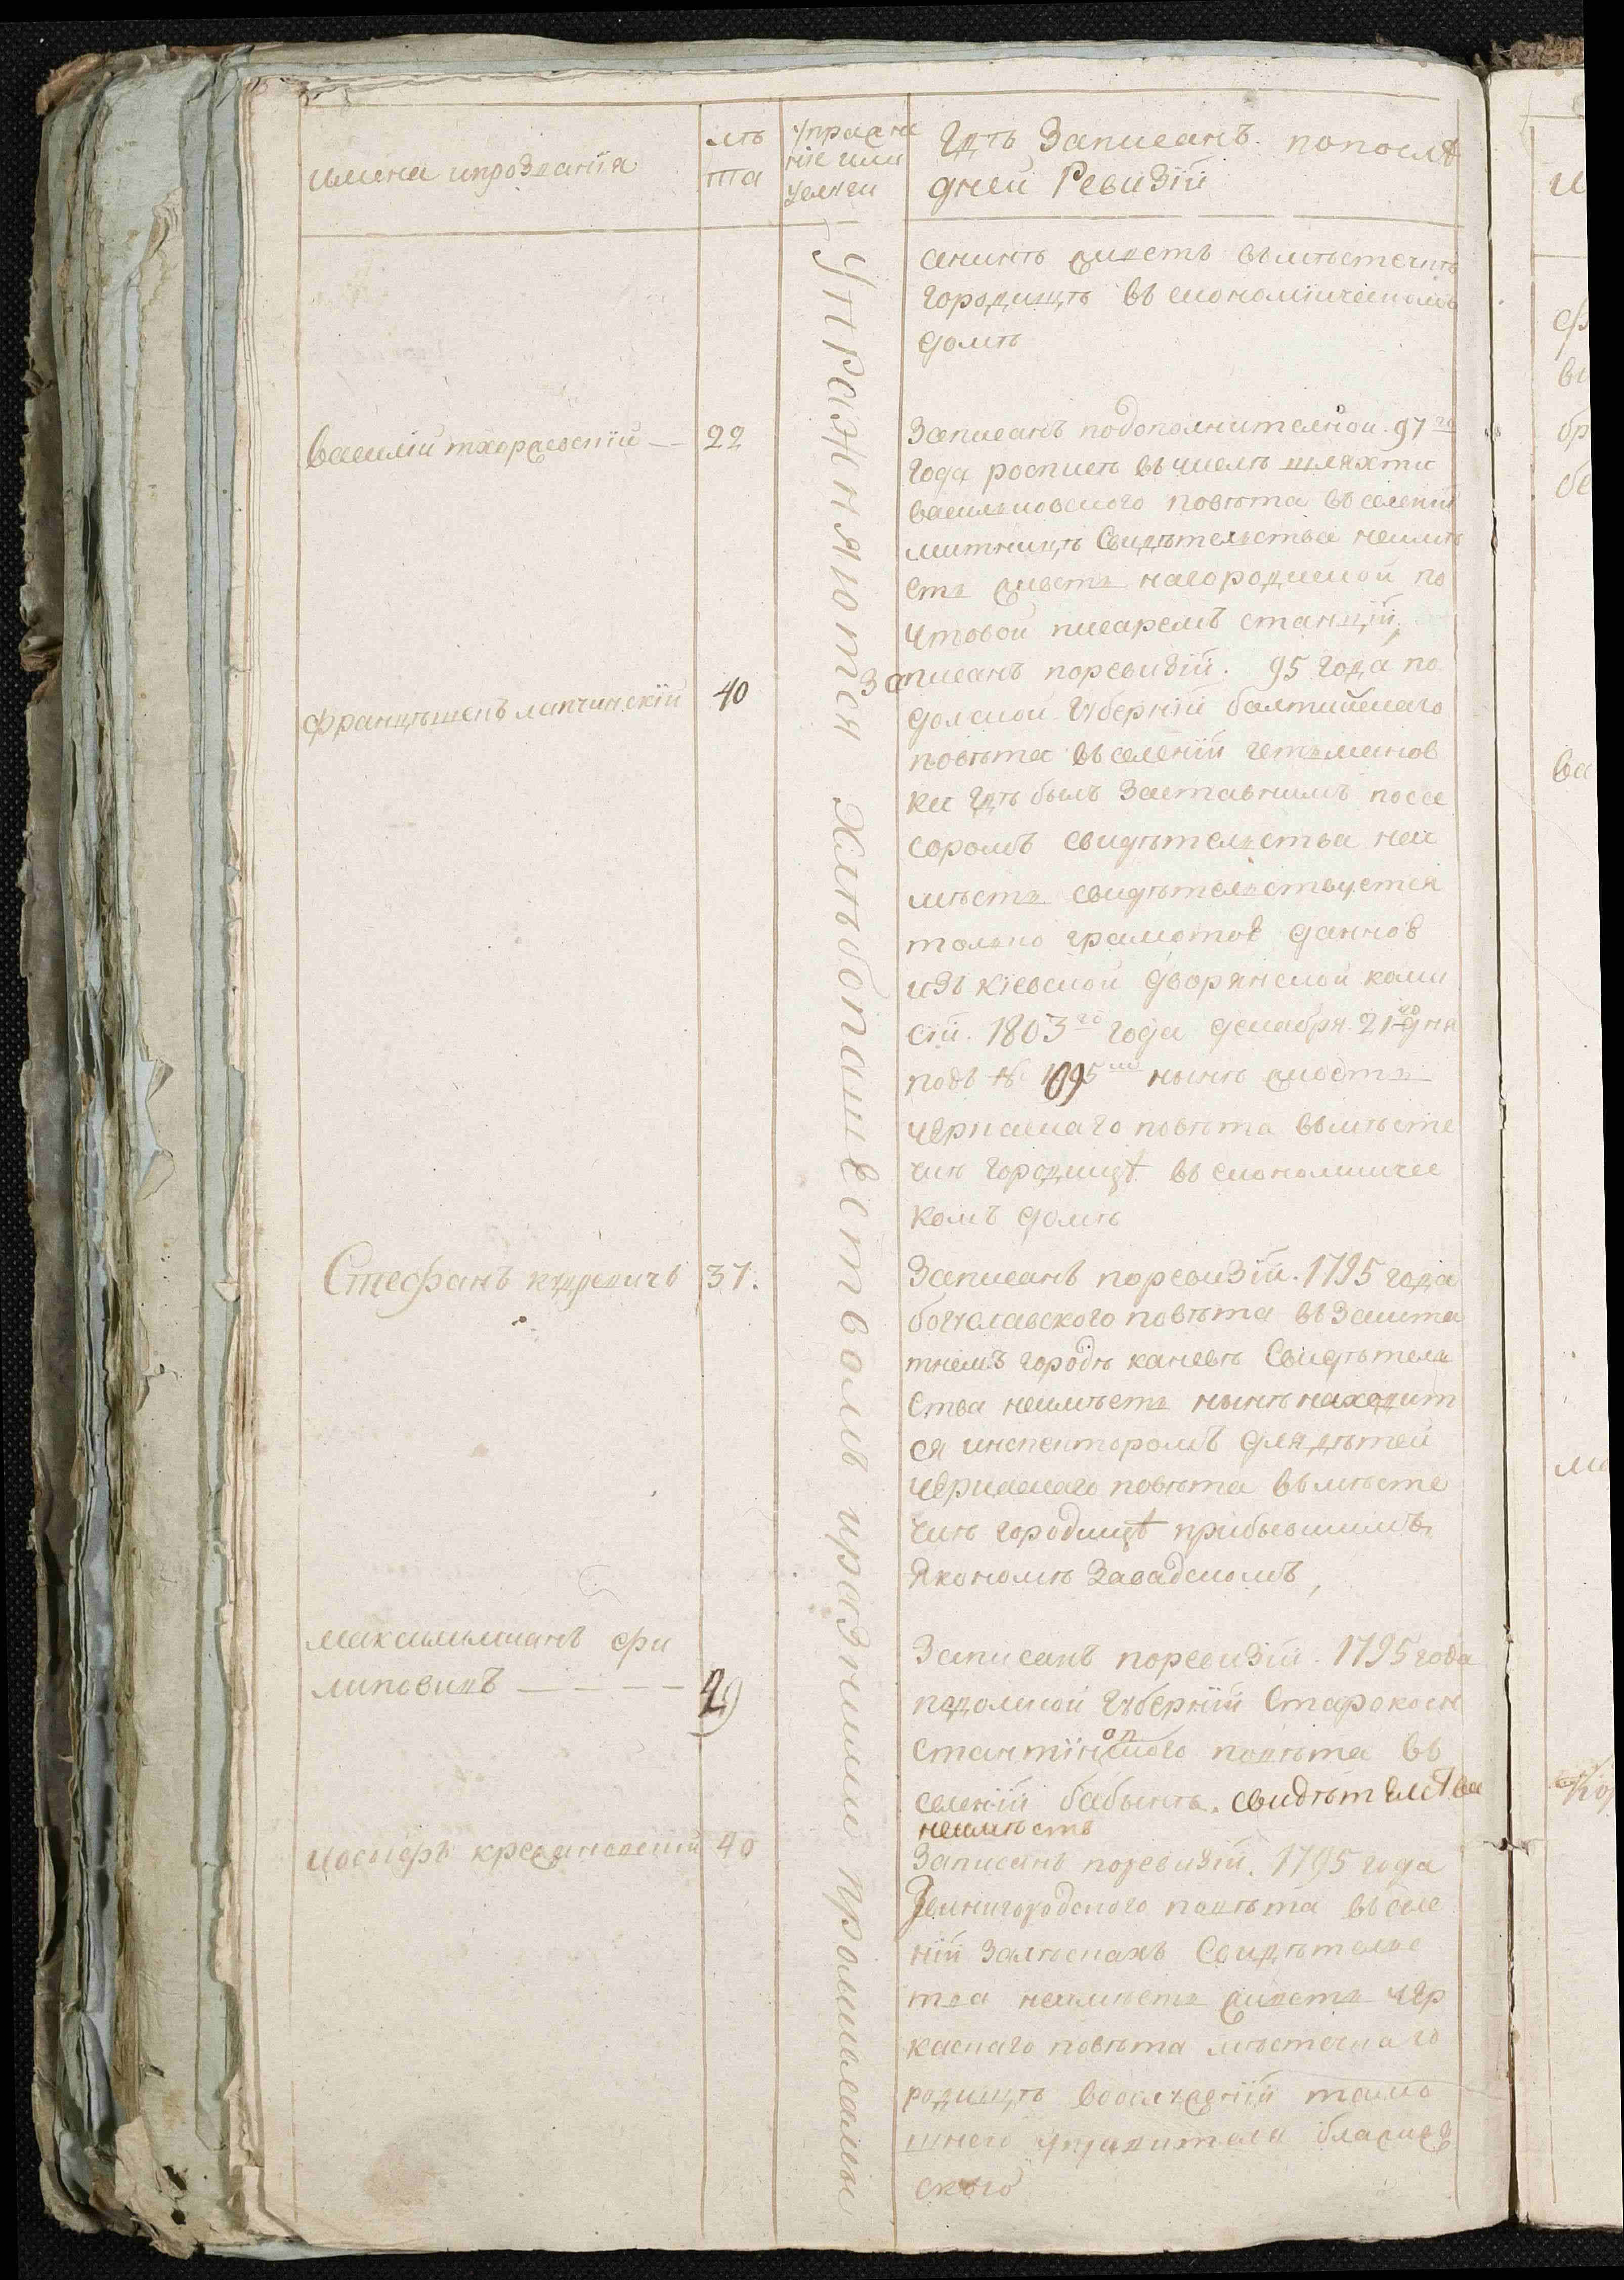 имена ипрозванія
лѣ
та
упражне
ніе или
услуги
Гдѣ Записанъ попослѣ
дней Ревизій
Упражняются хлѣбопашествомъ иразними промислами
живетъ вмѣстечкѣ
городищѣ въ економическомъ
домѣ
василій тхоржевскій — 22
Записанъ подополнителной 97го
года росписѣ вчислѣ шляхти
васильковского повѣта въ селеніи
митницѣ Свидѣтельства неимѣ
етъ живетъ нагородиской по
чтовой писаремъ станцій,
францѣшекъ лапчинскій 40
Записанъ поревизій. 95 года по
долской губерній балтийскаго
повѣта вселеній гетьмановки
ки гдѣ былъ Заставнимъ поссе
соромъ свидѣтельства неи
мѣетъ свидѣтельствуется
толко грамотою данною
изъ кіевской дворянской коми
сій. 1803го года декабря 21го дня
подъ № 1095мъ нынѣ живетъ
черкаскаго повѣта вмѣсте
чкѣ городищѣ въ економичес
комъ домѣ
Стефанъ 37.
Записанъ поревизій. 1795 года
богуславского повѣта въ Зашта
тнемъ городѣ каневѣ Свидѣтель
ства неимѣетъ нынѣ находит
ся инспекторомъ для дѣтей
черкаскаго повѣта вмѣсте
чкѣ городищѣ прибывшимъ
якономѣ Завадскомъ,
максимилианъ фи
липовичъ — — — — 29
Записанъ поревизій. 1795 года
подолской губерній Старокон
стантіновского повѣта въ
селеній бабынѣ. свидѣтелства
неимѣетъ
иосифъ кржижановскій 40
Записанъ поревизій. 1795 года
Звенигородского повѣта въ селе
ній Залѣскахъ Свидѣтелс
тва неимѣетъ живетъ чер
каскаго повѣта мѣстечка го
родищѣ воослуженій тамо
шнего управителя
ского